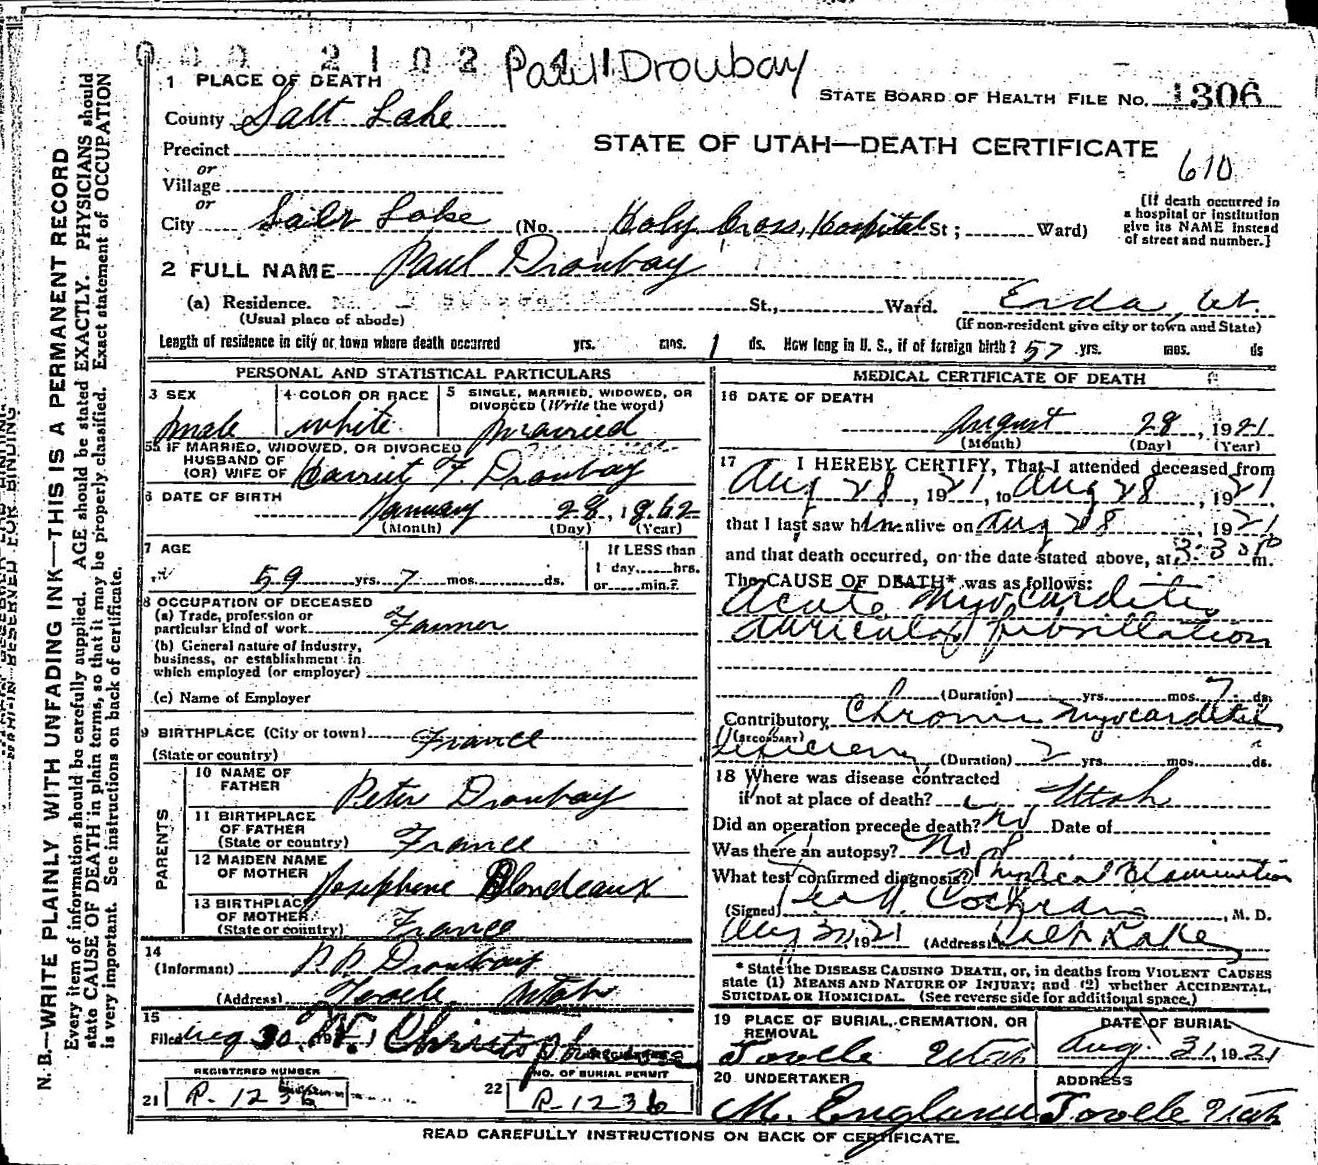 000 2102 Paul Droubay
1 PLACE OF DEATH
STATE BOARD OF HEALTH FILE NO. 1306
County Salt Lake
STATE OF UTAH—DEATH CERTIFICATE
610
Precinct
or
Village
or
City Salt Lake (No. Holy Cross, Hospital St; Ward)
[If death occurred in a hospital or institution give its NAME instead of street and number.]
2 FULL NAME Paul Droubay
(a) Residence. No. St., Ward. Erda, Ut.
(Usual place of abode) (If non-resident give city or town and State)
Length of residence in city or town where death occurred yrs. mos. 1 ds. How long in U. S., if of foreign birth? 57 yrs. mos. ds
PERSONAL AND STATISTICAL PARTICULARS
3 SEX male
4 COLOR OR RACE white
5 SINGLE, MARRIED, WIDOWED, OR DIVORCED (Write the word) Married
5a IF MARRIED, WIDOWED, OR DIVORCED
HUSBAND OF
(OR) WIFE OF Harriet F. Droubay
6 DATE OF BIRTH January 28, 1862
(Month) (Day) (Year)
7 AGE 59 yrs. 7 mos. ds.
If LESS than
1 day, hrs.
or min.?
8 OCCUPATION OF DECEASED
(a) Trade, profession or
particular kind of work Farmer
(b) General nature of industry,
business, or establishment in
which employed (or employer)
(c) Name of Employer
9 BIRTHPLACE (City or town) France
(State or country)
PARENTS
10 NAME OF FATHER Peter Droubay
11 BIRTHPLACE OF FATHER (State or country) France
12 MAIDEN NAME OF MOTHER Josephine Blondeaux
13 BIRTHPLACE OF MOTHER (State or country) France
14
(Informant) P. P. Droubay
(Address) Tooele, Utah
15
Filed Aug 30, 192
REGISTERED NUMBER
21 R-1236
NO. OF BURIAL PERMIT
22 R-1236
MEDICAL CERTIFICATE OF DEATH
16 DATE OF DEATH
August 28, 1921
(Month) (Day) (Year)
17 I HEREBY CERTIFY, That I attended deceased from
Aug 28, 1921, to Aug 28, 1921
that I last saw him alive on Aug 28, 1921
and that death occurred, on the date stated above, at 3:30 P m.
The CAUSE OF DEATH* was as follows:
Acute Myocarditis
auricular fibrillation
(Duration) yrs. mos. 7 ds.
Contributory Chronic Myocarditis
(SECONDARY)
(Duration) 2 yrs. mos. ds.
18 Where was disease contracted
if not at place of death? Utah
Did an operation precede death? No Date of
Was there an autopsy? No
What test confirmed diagnosis? Physical Examination
(Signed) Cochran, M. D.
Aug 30, 1921 (Address) Salt Lake
* State the DISEASE CAUSING DEATH, or, in deaths from VIOLENT CAUSES
state (1) MEANS AND NATURE OF INJURY; and (2) whether ACCIDENTAL,
SUICIDAL OR HOMICIDAL. (See reverse side for additional space.)
19 PLACE OF BURIAL, CREMATION, OR REMOVAL Tooele Utah
DATE OF BURIAL Aug 31, 1921
20 UNDERTAKER M. England
ADDRESS Tooele Utah
READ CAREFULLY INSTRUCTIONS ON BACK OF CERTIFICATE.
N. B.—WRITE PLAINLY, WITH UNFADING INK—THIS IS A PERMANENT RECORD
Every item of information should be carefully supplied. AGE should be stated EXACTLY. PHYSICIANS should
state CAUSE OF DEATH in plain terms, so that it may be properly classified. Exact statement of OCCUPATION
is very important. See instructions on back of certificate.
MARGIN RESERVED FOR BINDING